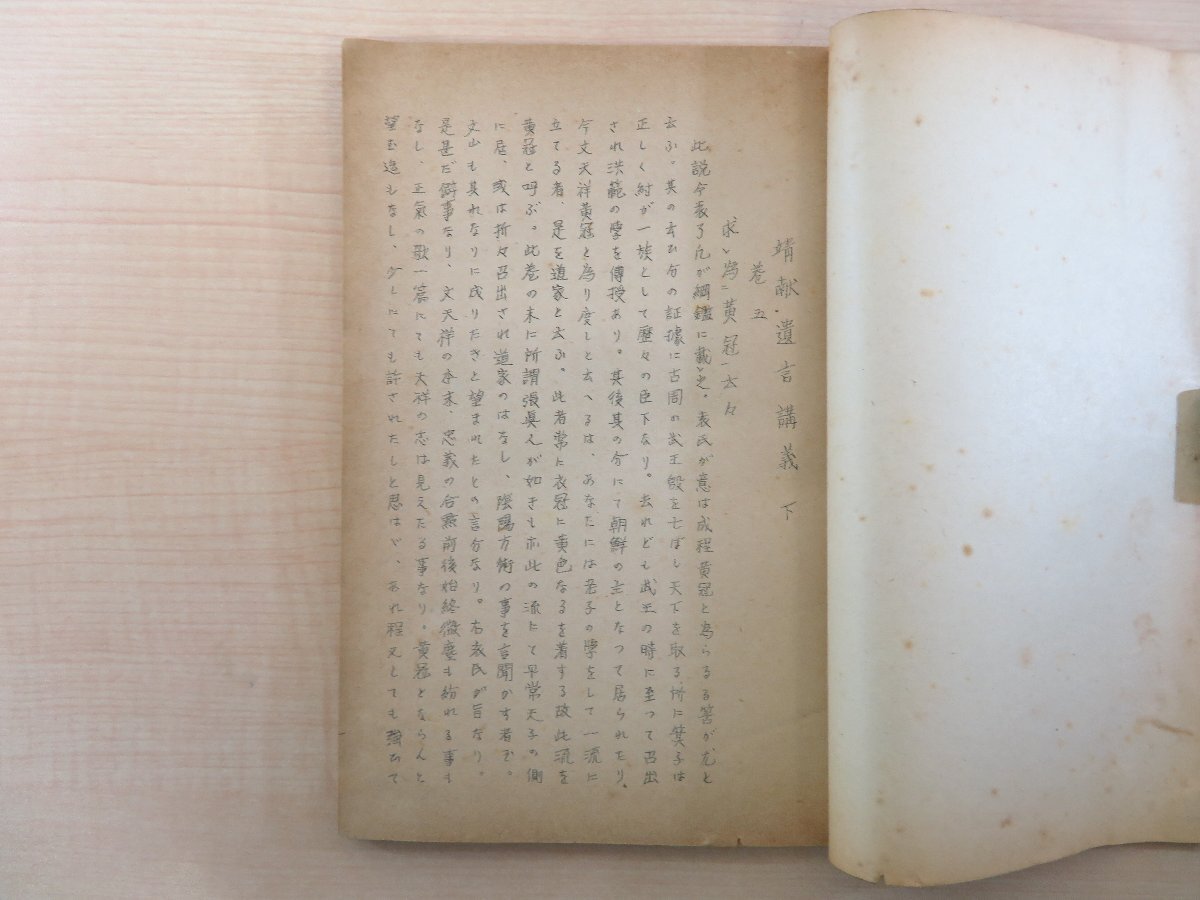 靖献遺言講義 下
巻五
求レ為二黄冠一云々
此説今袁了凡が綱鑑に載レ之。袁氏が意は成程黄冠と為らるる筈が尤と
云ふ。其の云ひ分の証據に古周の武王殷を亡ぼし天下を取る所に箕子は
正しく紂が一族として歴々の臣下なり。去れども武王の時に至つて召出
され洪範の學を傳授あり。其後其の分にて朝鮮の主となつて居られたり。
今文天祥黄冠と為り度しと云へるは、あなたには老子の學をして一流に
立てる者、是を道家と云ふ。此者常に衣冠に黄色なるを着する故此流を
黄冠と呼ぶ。此巻の末に所謂張真人が如きも亦此の流にて平常天子の側
に居、或は折々召出され道家のはなし、陰陽方術の事を言聞かす者ぞ。
文山も其れなりに成りたきと望まれたとの言分なり。右袁氏が旨なり。
是甚だ僻事なり、文天祥の本末、忠義の合点前後始終微塵も紛れる事も
なし、正氣の歌一篇にても天祥の志は見えたる事なり。黄冠とならんと
望む造もなし、少しにても許されたしと思はゞ、あれ程又しても強ひて